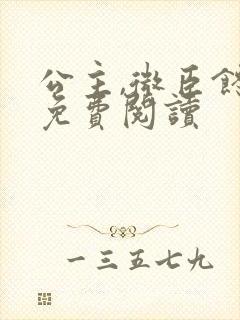 公主,微臣
免費閱讀
一三五七九